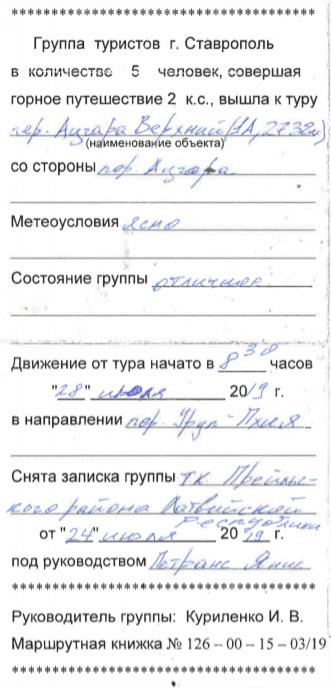 ****************************************
Группа туристов г. Ставрополь
в количестве 5 человек, совершая
горное путешествие 2 к.с., вышла к туру
пер. Ацгара Верхний (1А, 2732м)
(наименование объекта)
со стороны пер. Ацгара
Метеоусловия ясно
Состояние группы отличное
Движение от тура начато в 8 30 часов
"28" июля 2019 г.
в направлении пер. Уруп-Пхия
Снята записка группы ТК Прейльс-
кого района Латвийской
Республики
от "24" июля 2019 г.
под руководством Петранс Янис
****************************************
Руководитель группы: Куриленко И. В.
Маршрутная книжка № 126 – 00 – 15 – 03/19
****************************************